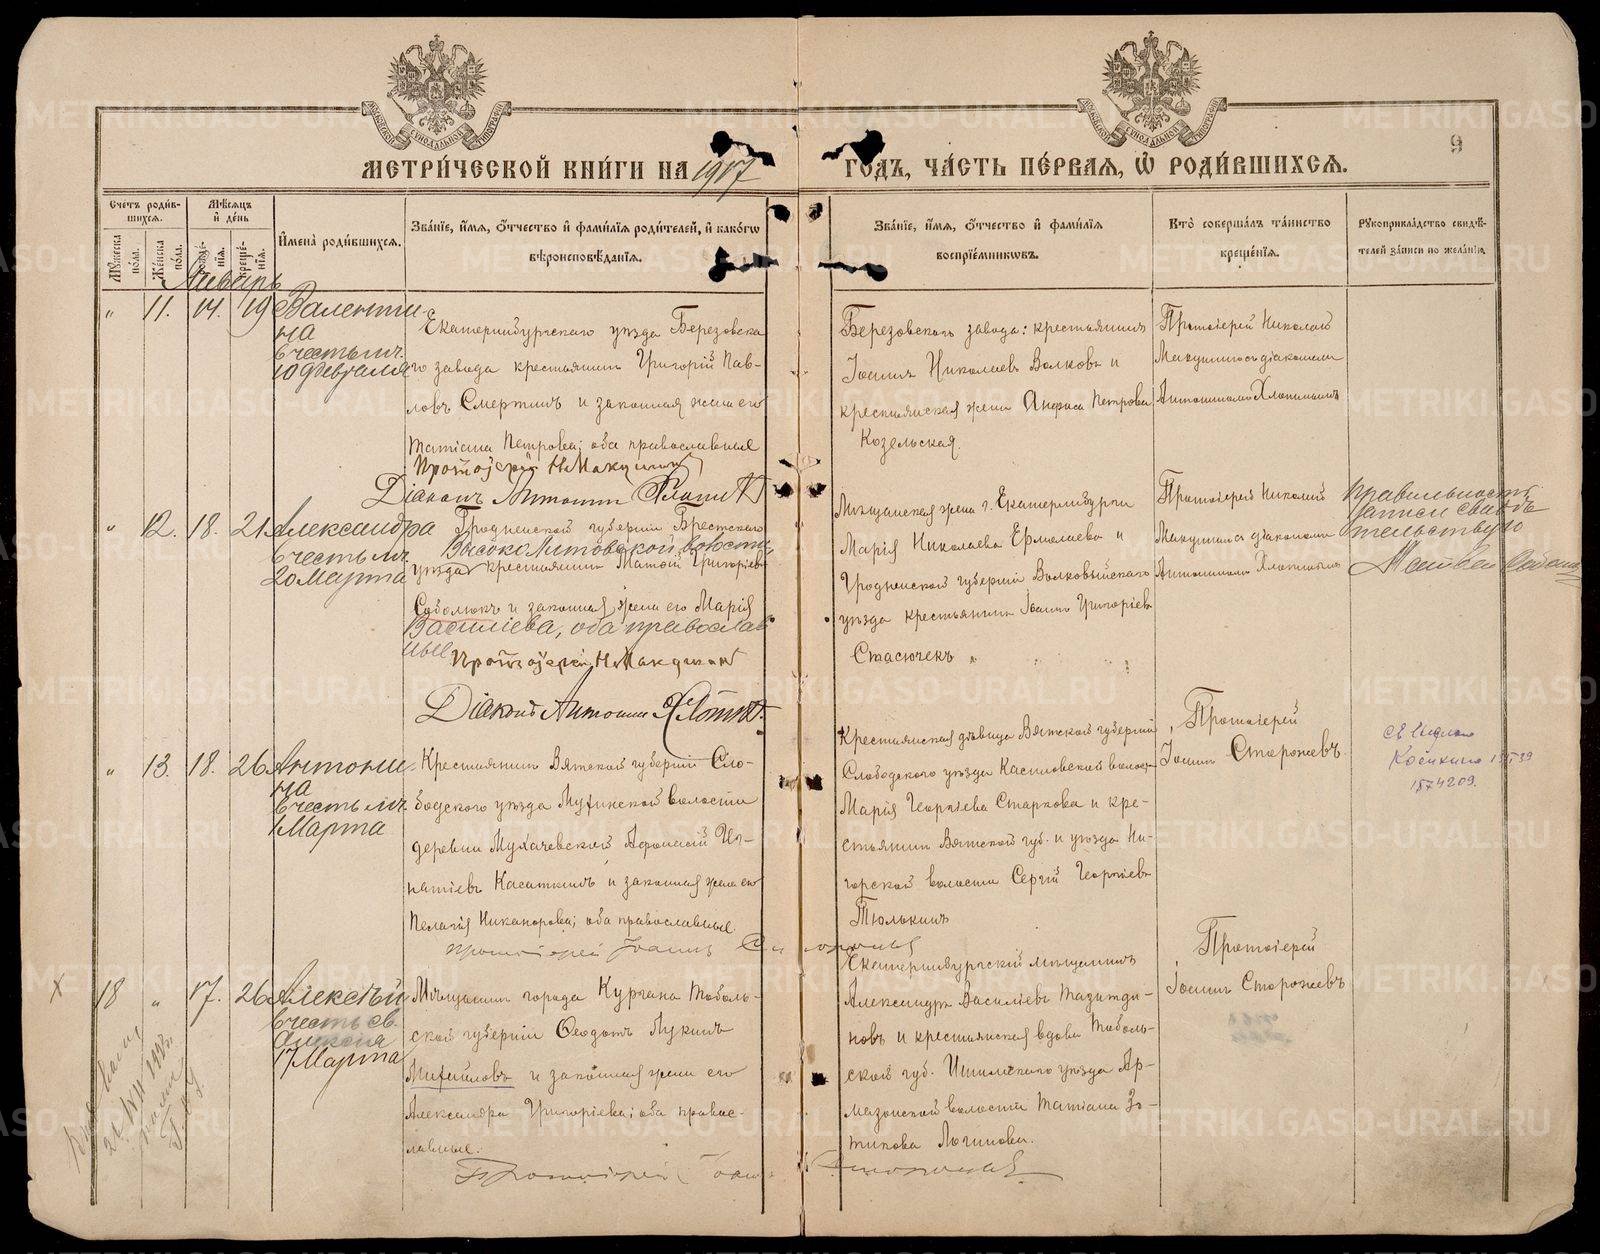 МЕТРИ́ЧЕСКОЙ КНИ́ГИ НА 1917 ГОДЪ, ЧА́СТЬ ПЕ́РВАЯ, Ѡ҆ РОДИ́ВШИХСЯ.
9
Счетъ роди́в-
шихся.
Мѣ́сяцъ
и҆ де́нь
Му́жеска
по́ла.
Же́нска
по́ла.
рожде́-
нїя.
креще́-
нїя.
И҆мена̀ роди́вшихся.
Зва́нїе, и҆́мя, о҆́тчество и҆ фами́лїя роди́телей, и҆ како́гѡ
вѣроисповѣ́данїя.
Зва́нїе, и҆́мя, о҆́тчество и҆ фами́лїя
воспрїе́мникѡвъ.
Кто̀ соверша́лъ та́инство
креще́нїя.
Рукоприкла́дство свидѣ́-
телей за́писи по жела́нїю.
Январь
„ 11. 14. 19
Валенти-
на
в честь мц.
10 Февраля
Екатеринбургскаго уѣзда Березовска
го завода крестьянинъ Григорій Пав-
ловъ Смертинъ и законная жена его
Татіана Петрова; оба православные
Протоіерей Н Макушинъ
Діаконъ Антонинъ Хлопинъ
Березовскаго завода: крестьянинъ
Іоаннъ Николаевъ Волковъ и
крестьянская жена Анфиса Петрова
Козельская.
Протоіерей Николай
Макушинъ съ діакономъ
Антониномъ Хлопинымъ
„ 12. 18. 21.
Александра
в честь мц.
20 Марта
Гродненской губерніи Брестскаго
Высоко Литовской волости
уѣзда крестьянинъ Матѳій Григорьев
Соболюкъ и законная жена его Марія
Василіева, оба православ
ные
Протоіерей Н Макушинъ
Діаконъ Антонинъ Хлопинъ.
Мѣщанская жена г. Екатеринбурга
Марія Николаева Ермолаева и
Гродненской губерніи Волковыйскаго
уѣзда крестьянинъ Іоаннъ Григоріевъ
Стасючекъ
Протоіерей Николай
Макушинъ съ діакономъ
Антониномъ Хлопинымъ
Правильность
записи свидѣ
тельствую
Матвей
„ 13. 18. 26
Антони-
на
в честь мц.
1 Марта
Крестьянинъ Вятской губерніи Сло-
бодского уѣзда Мухинской волости
деревни Мухачевской Аѳонасій Иг-
натіевъ Касаткинъ и законная жена его
Пелагія Никанорова; оба православные.
Протоіерей Іоаннъ Сторожевъ
Крестьянская дѣвица Вятской губерніи
Слободского уѣзда Касиновской волост
Марія Георгіева Старкова и кре-
стьянинъ Вятской губ. и уѣзда На-
горской волости Сергій Георгіевъ
Тюлькинъ
Протоіерей
Іоаннъ Сторожевъ.
1574209.
18 „ 17. 26
Алексѣй
в честь св.
Алексія
17 Марта
Мѣщанинъ города Кургана Тоболь-
ской губерніи Ѳеодотъ Лукинъ
Михайловъ и законная жена его
Александра Григоріева; оба правос-
лавные.
Протоіерей Іоаннъ Сторожевъ
Екатеринбургскій мѣщанинъ
Александръ Василіевъ
новъ и крестьянская вдова Тоболь-
ской губ. Ишимскаго уѣзда Ар-
мазонской волости Татіана Зо-
тикова Логинова.
Протоіерей
Іоаннъ Сторожевъ
METRIKI.GASO-URAL.RU